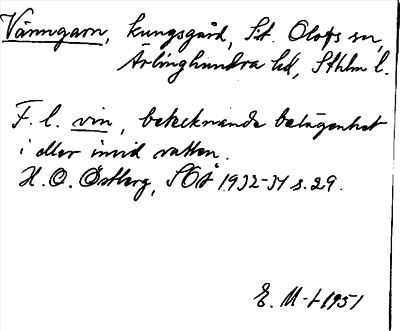 Vänngarn, kungsgård, S:t Olofs sn,
Ärlinghundra hd, Sthlm l.
F. l. vin, betecknande belägenhet
i eller invid vatten.
H. O. Östberg, SOÅ 1932-31 s. 29.
E. M-t 1951